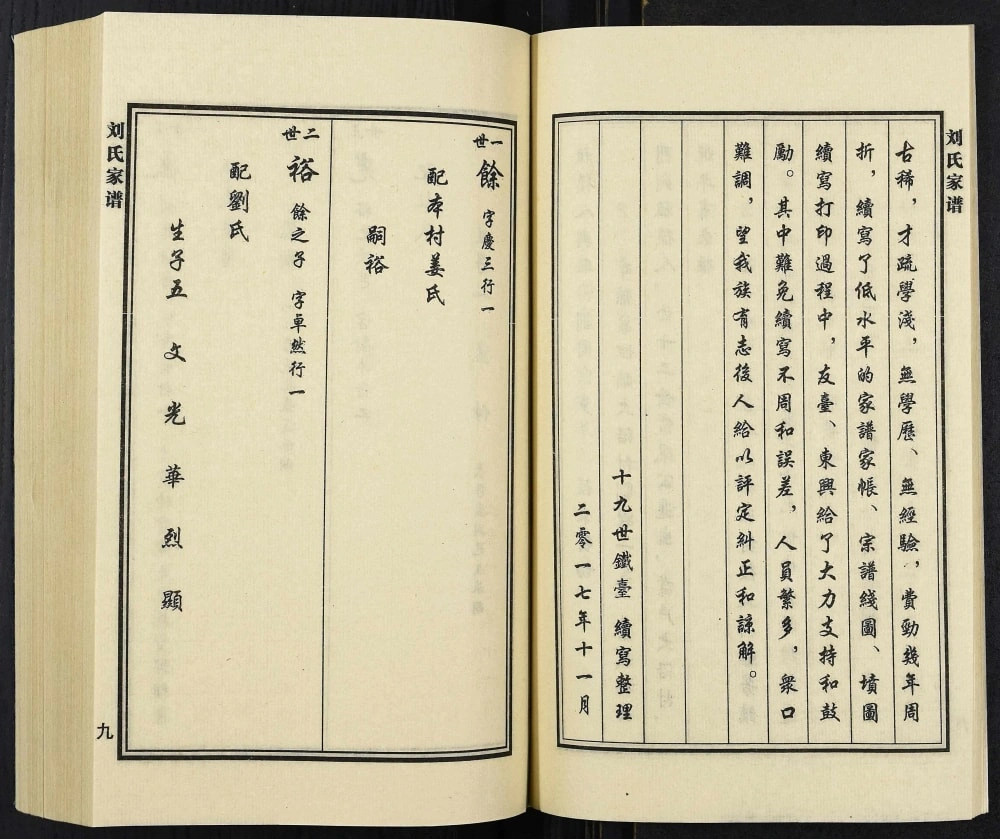 刘氏家谱
古稀，才疏學淺，無學歷、無經驗，費勁幾年周
折，續寫了低水平的家譜家帳、宗譜綫圖、墳圖
續寫打印過程中，友臺、東興給了大力支持和鼓
勵。其中難免續寫不周和誤差，人員繁多，衆口
難調，望我族有志後人給以評定糾正和諒解。
十九世鐵臺 續寫整理
二零一七年十一月
一世 餘 字慶三行一
配本村姜氏
嗣裕
二世 裕 餘之子 字卓然行一
配劉氏
生子五 文 光 華 烈 顯
刘氏家谱
九